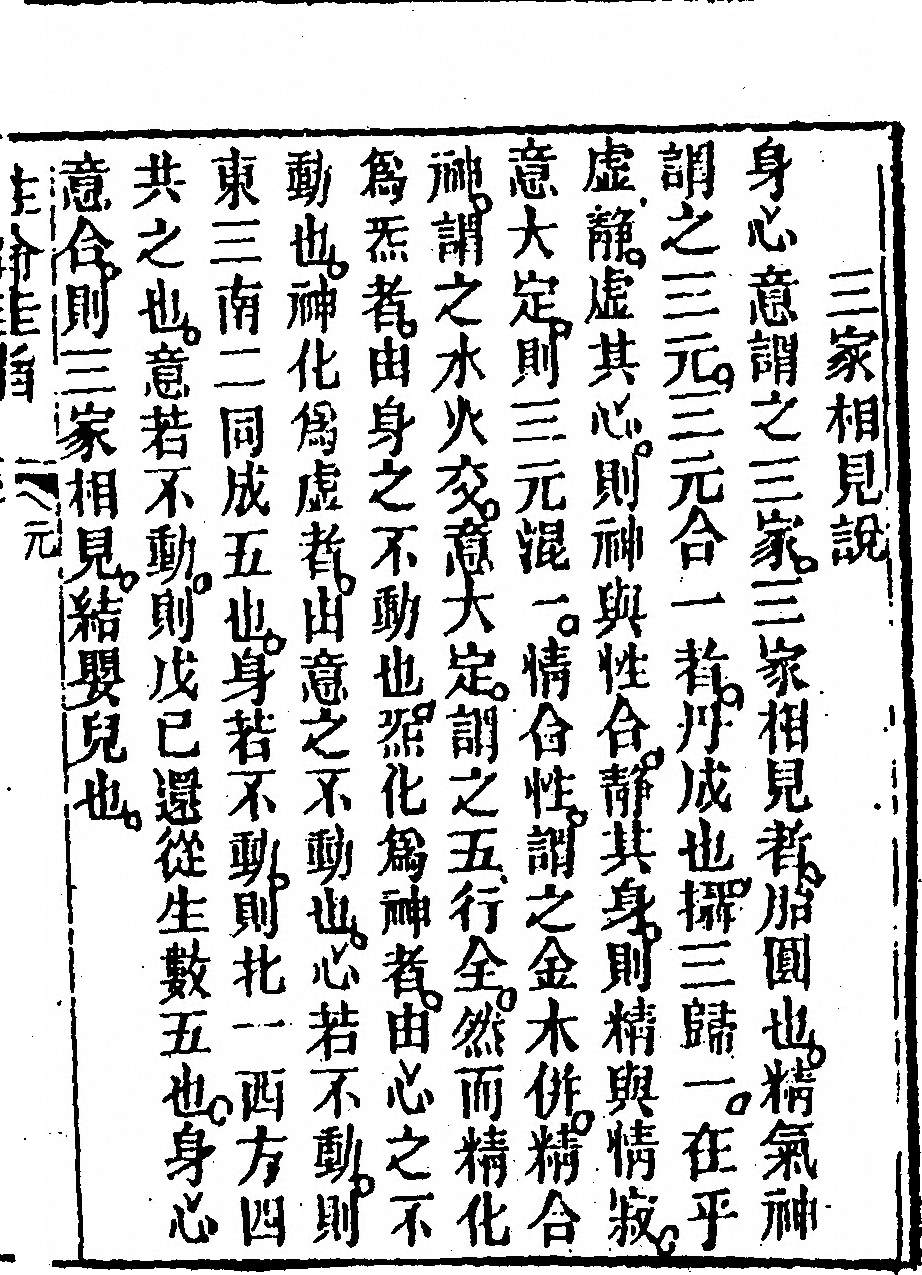 三家相見說
身心意謂之三家。三家相見者。胎圓也。精氣神
謂之三元。三元合一者。丹成也。攝三歸一。在乎
虛靜。虛其心。則神與性合。靜其身。則精與情寂。
意大定。則三元混一。情合性。謂之金木併。精合
神。謂之水火交。意大定。謂之五行全。然而精化
爲炁者。由身之不動也。炁化爲神者。由心之不
動也。神化爲虛者。由意之不動也。心若不動。則
東三南二同成五也。身若不動。則北一西方四
共之也。意若不動。則戊己還從生數五也。身心
意合。則三家相見。結嬰兒也。
元